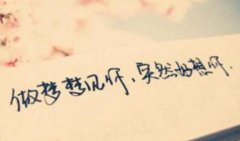 做梦梦见你.突然好想你.